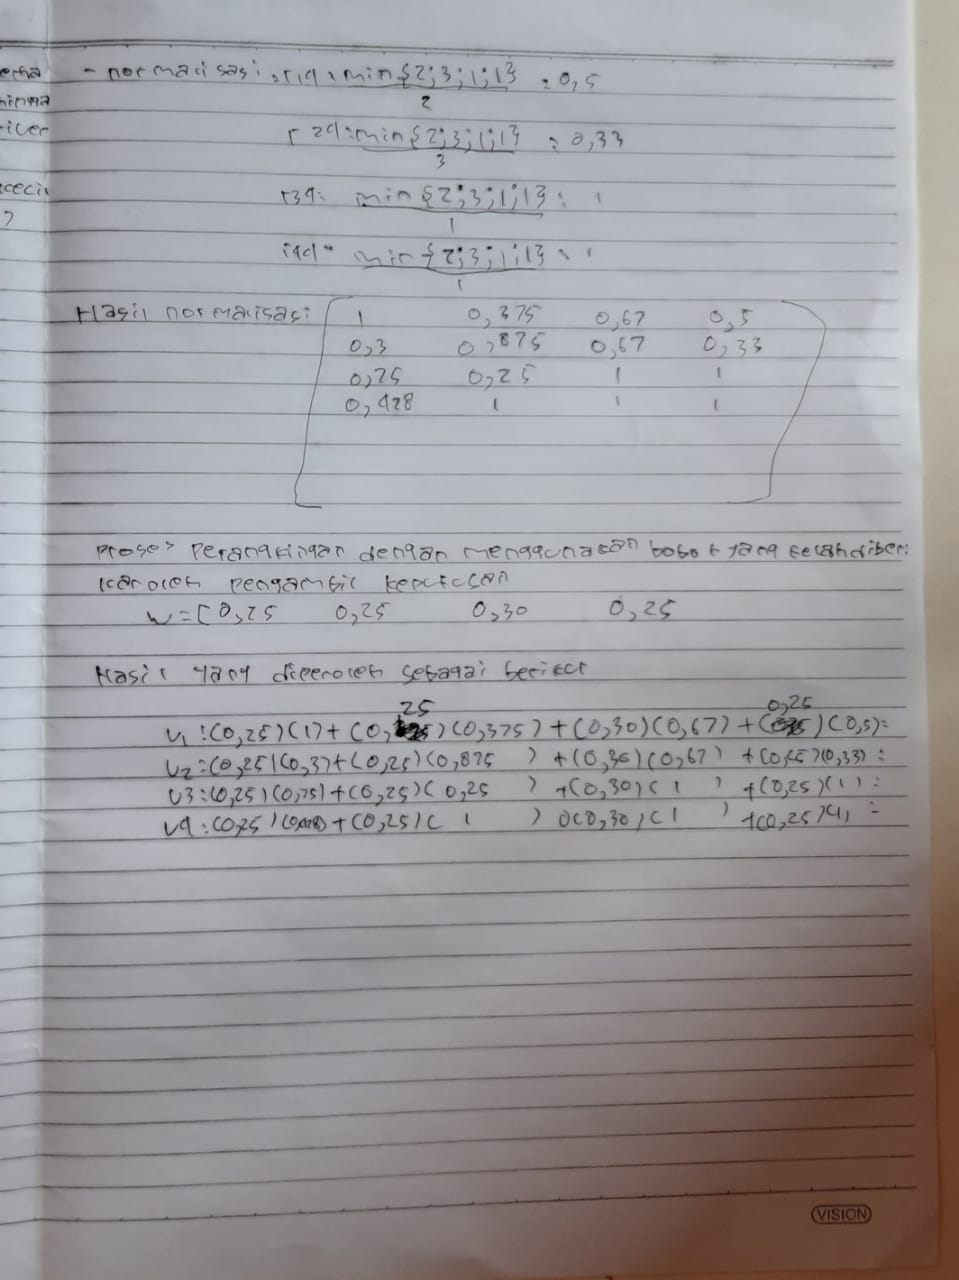 erha
ninma
river
- normalisasi : r14 : min {2;3;1;1} = 0,5
2
r 24 : min {2;3;1;1} = 0,33
3
r34 : min {2;3;1;1} : 1
1
r44 = min {2;3;1;1} = 1
1
?
Hasil normalisasi
1 0,375 0,67 0,5
0,3 0,875 0,67 0,33
0,75 0,25 1 1
0,428 1 1 1
proses Perangkingan dengan menggunakan bobot yang telah diberi
kan oleh pengambil keputusan
w = [0,25 0,25 0,30 0,25
Hasil yang diperoleh sebagai berikut
25 0,25
V1 : (0,25)(1) + (0, ) (0,375) + (0,30)(0,67) + ( ) (0,5) =
V2 = (0,25)(0,3) + (0,25)(0,875 ) + (0,30)(0,67) + (0,25)(0,33) =
V3 : (0,25)(0,75) + (0,25)( 0,25 ) + (0,30)( 1 ) + (0,25)(1) =
V4 : (0,25) + (0,25)( 1 ) (0,30)(1 ) + (0,25)(1) =
VISION